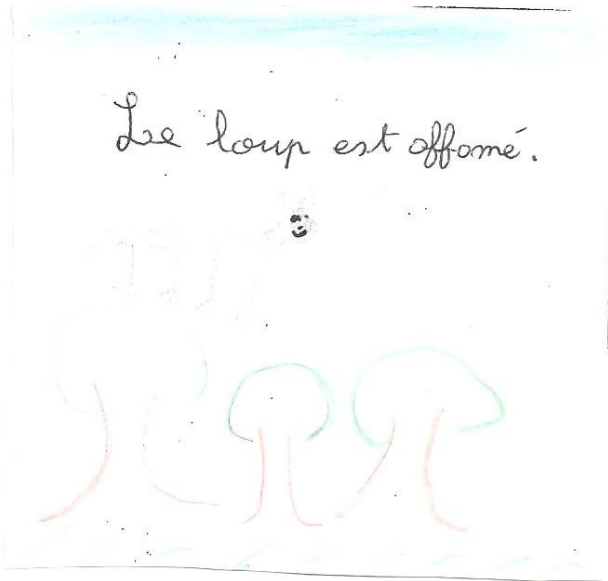 Le loup est affamé.